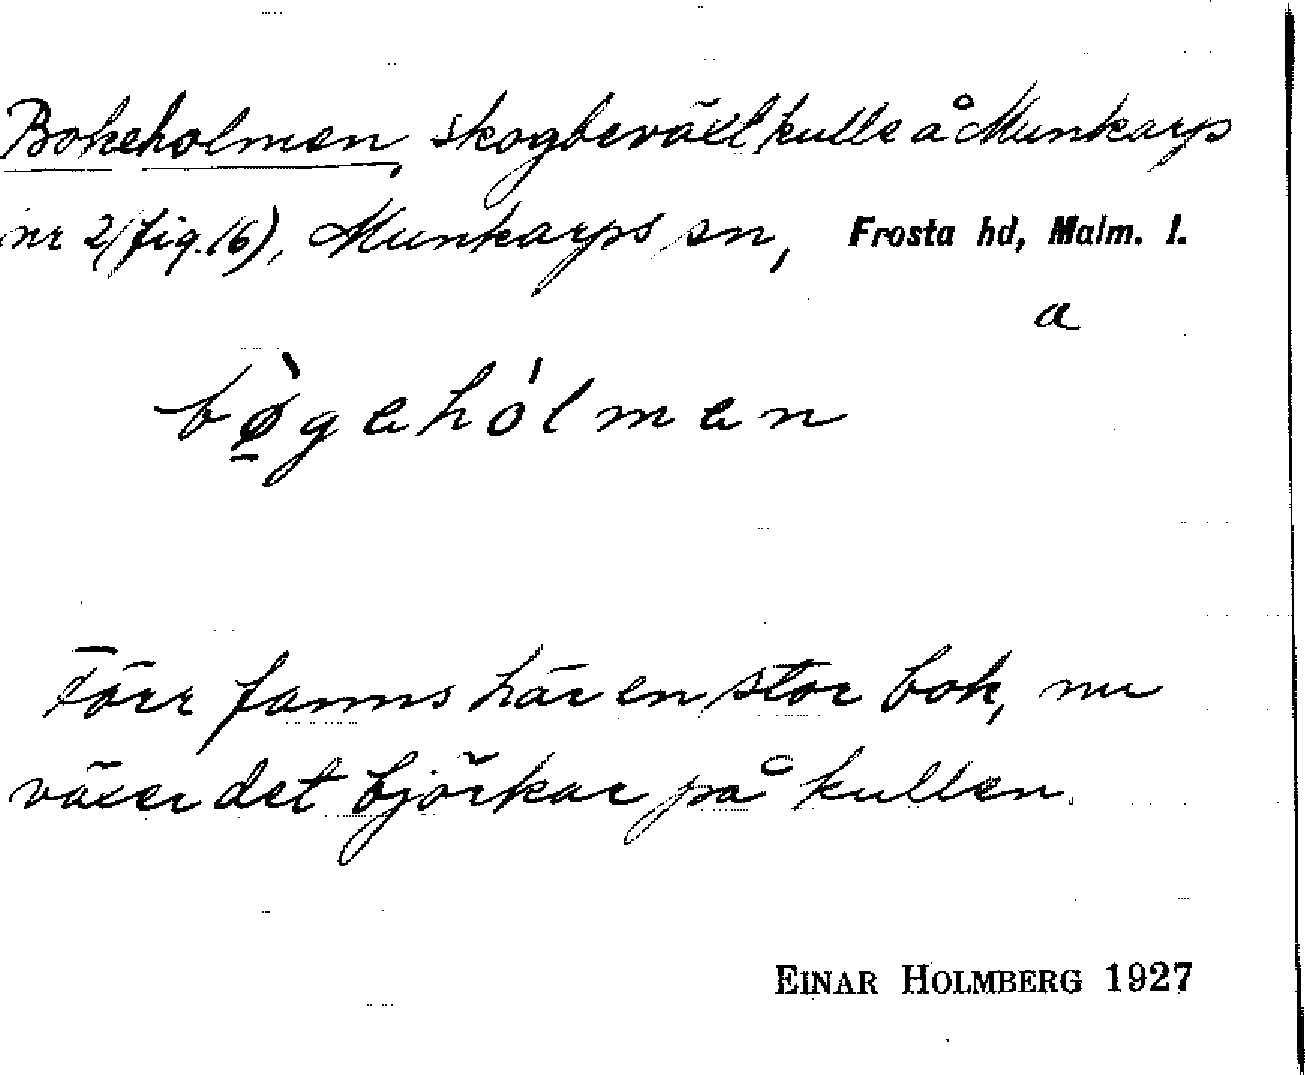 Bokeholmen, skogbeväxt kulle å Munkarp
nr 2 (fig. 16), Munkarps sn, Frosta hd, Malm. l.
a
bø̠̀gehólmen
Förr fanns här en stor bok, nu
växer det björkar på kullen.
EINAR HOLMBERG 1927